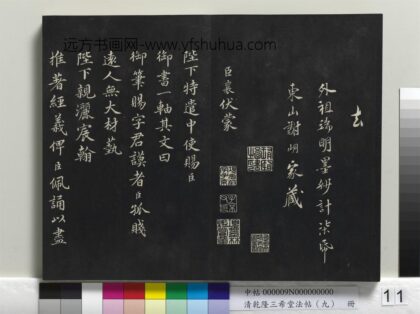 去
外祖端明墨妙計柒帋
東山謝家藏
臣襄伏蒙
陛下特遣中使賜臣
御書一軸其文曰
御筆賜字君謨者臣孤賤
遠人無大材藝
陛下親灑宸翰
推著經義俾臣佩誦以盡
远方书画网-www.yfshuhua.com
中帖 000009N000000000
清乾隆三希堂法帖(九) 冊
11